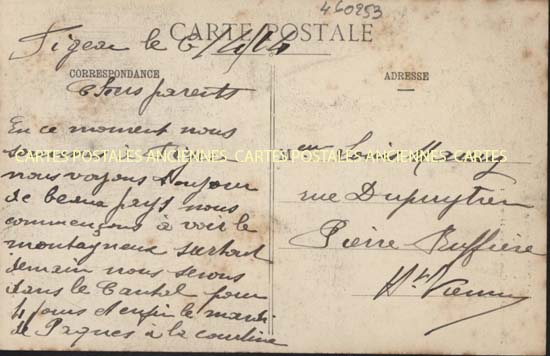 460253
CARTE POSTALE
Figeac le 6/4/14
CORRESPONDANCE
ADRESSE
Chers parents
En ce moment nous
sommes à Figeac
CARTES POSTALES ANCIENNES CARTES POSTALES ANCIENNES
nous voyons toujour
de beau pays nous
commençons à voir le
montagneux surtout
demain nous serons
dans le Cantal pour
4 jours et enfin le mardi
de Paques à la courtine
Mr
rue Dupuytren
Pierre Buffière
Hte Vienne